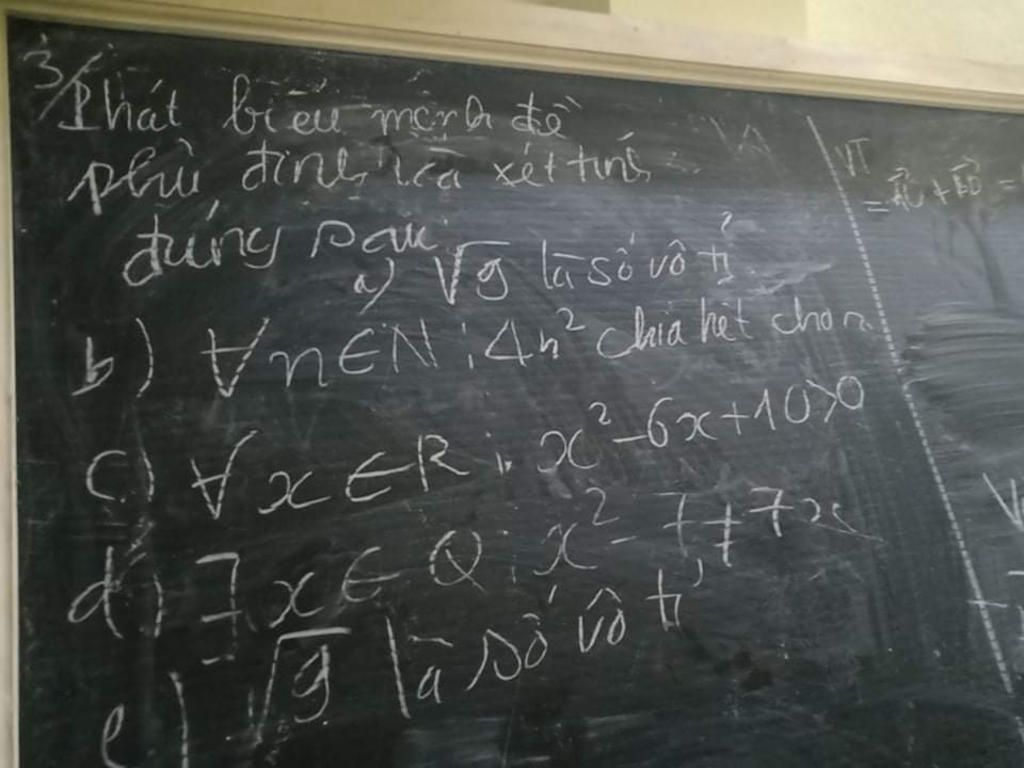 3/ Phát biểu mệnh đề
phủ định và xét tính
đúng sai
a) √9 là số vô tỉ
b) ∀n∈N : 4n² chia hết cho n
c) ∀x∈R : x²-6x+10>0
d) ∃x∈Q : x²-7≠7x
e) √9 là số vô tỉ
VT